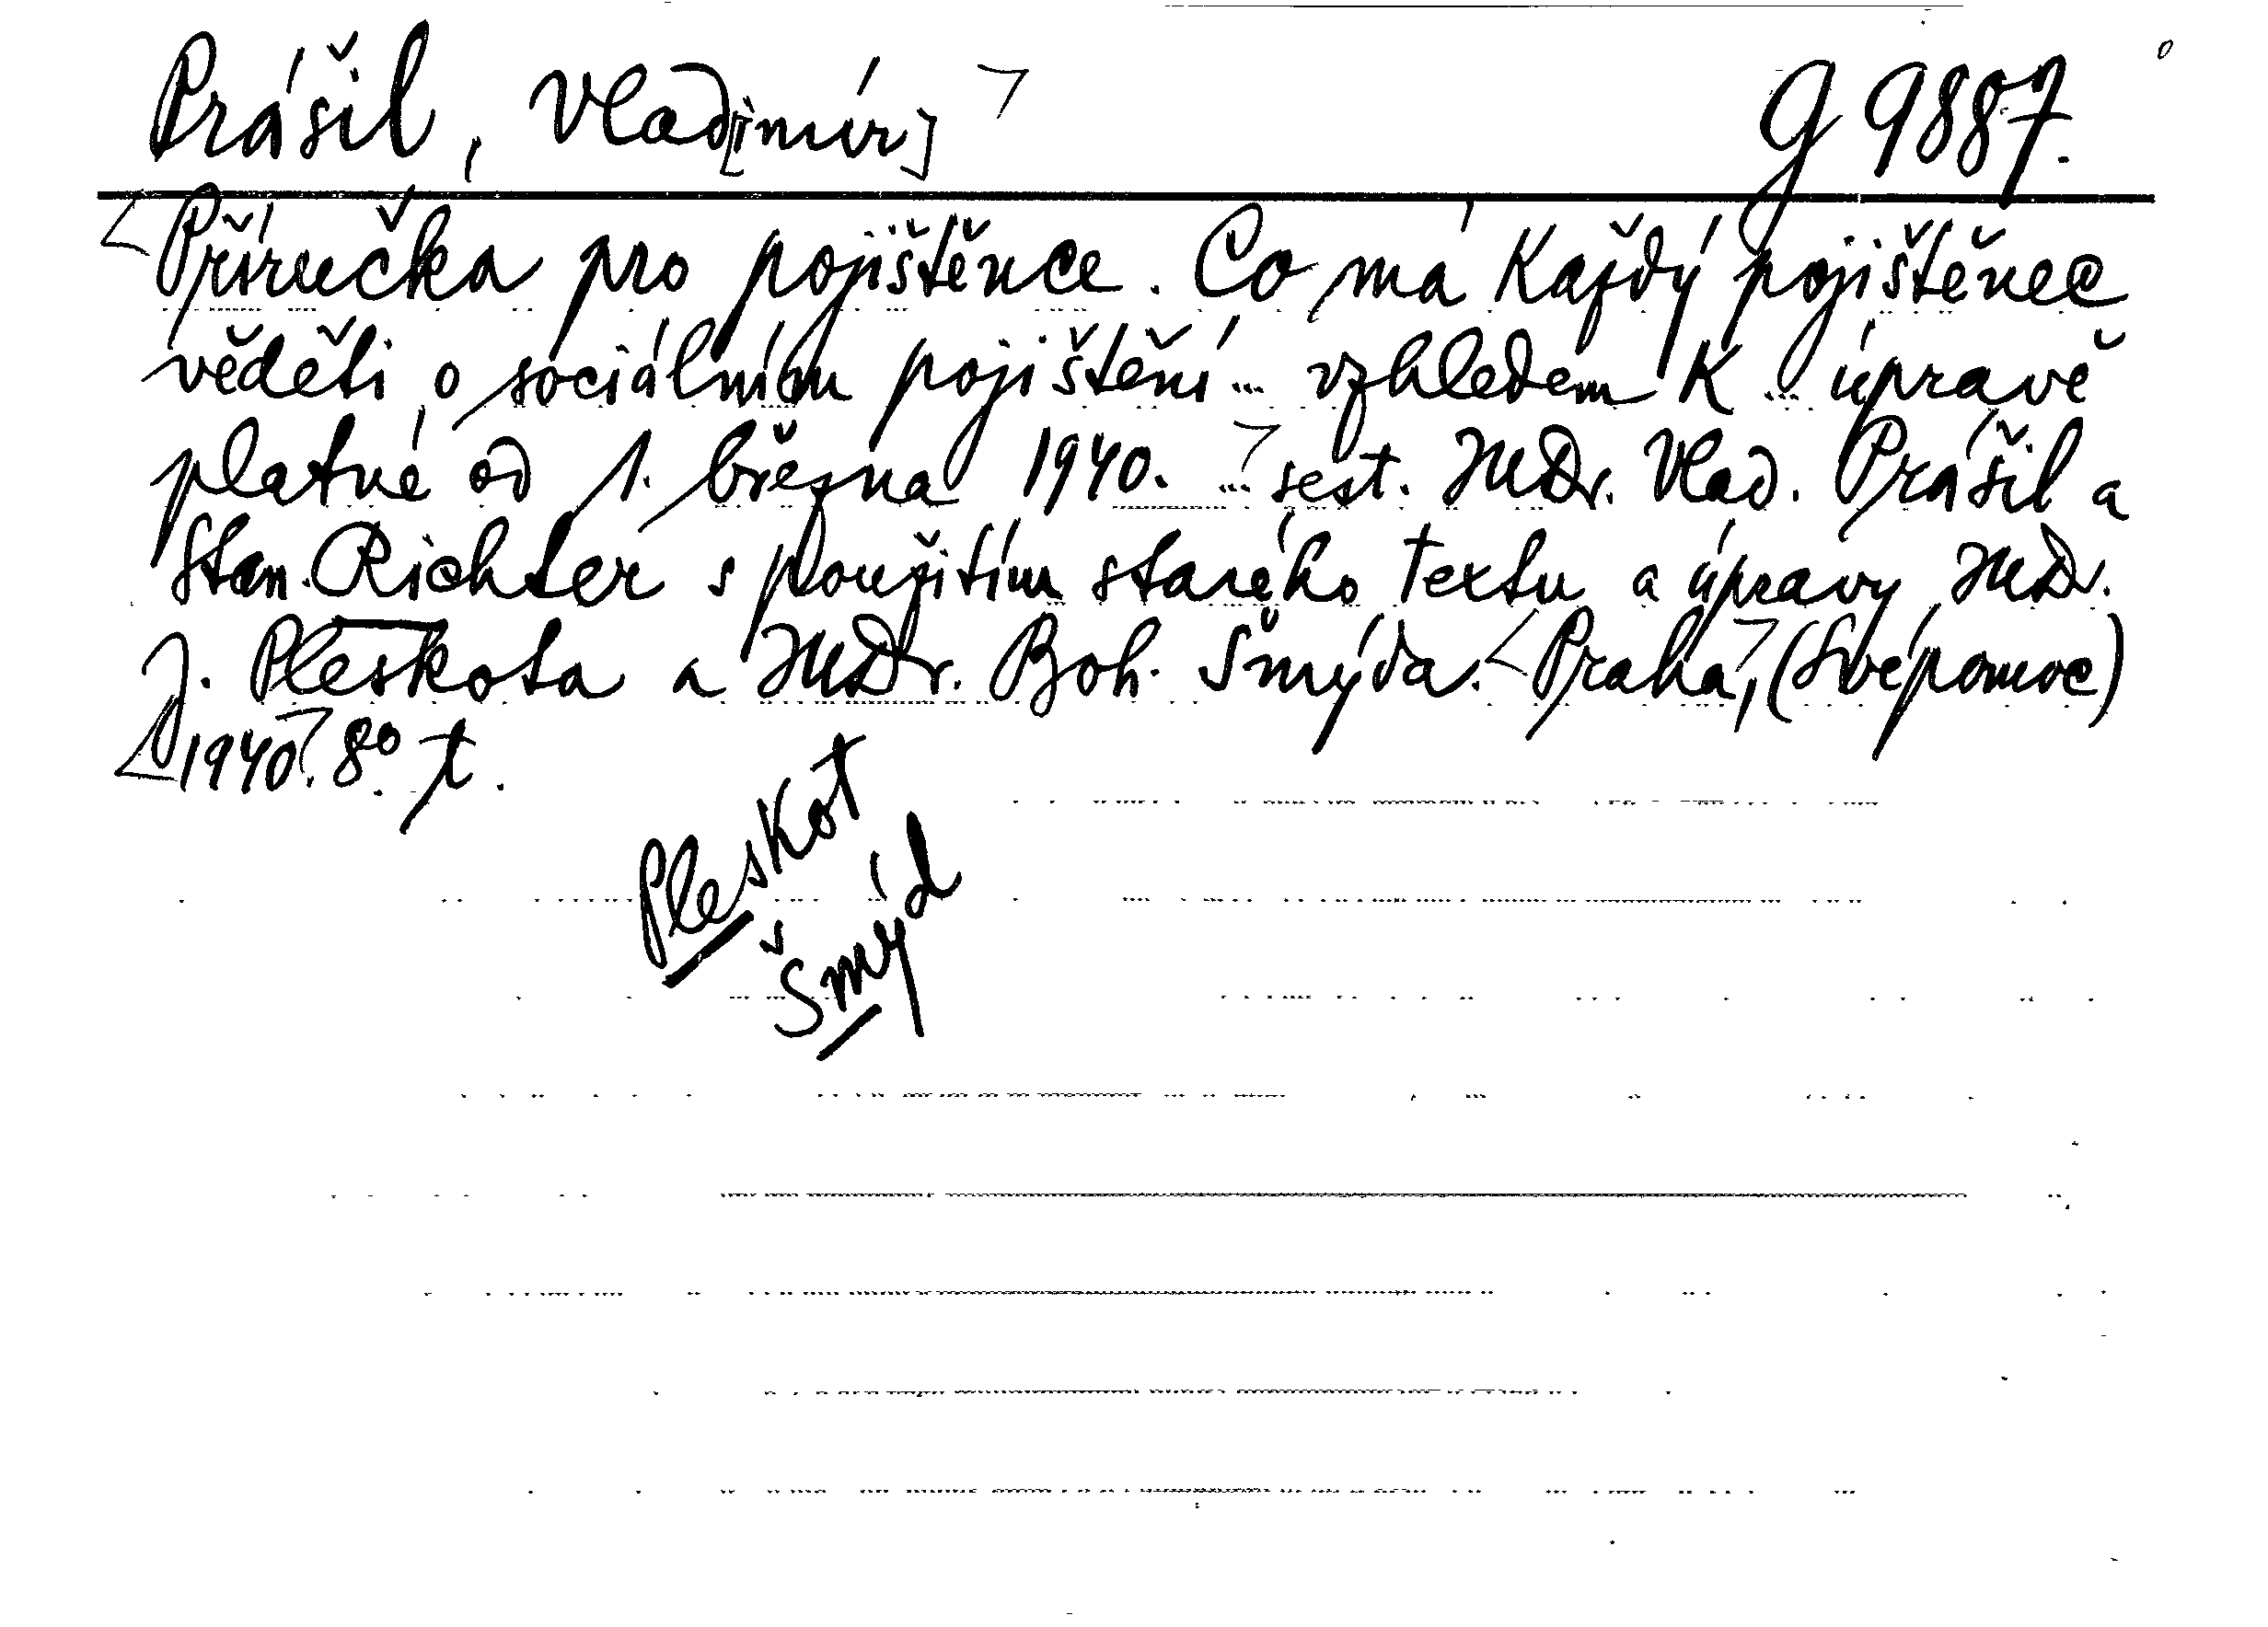 Prášil, Vlad[imír] G 9887.
Příručka pro pojištěnce. Co má každý pojištěnec
věděti o sociálním pojištění vzhledem k úpravě
platné od 1. března 1940. sest. JUDr. Vlad. Prášil a
Stan. Richter s použitím starého textu a úpravy JUDr.
J. Pleskota a JUDr. Boh. Šmýda. Praha, (Svépomoc)
1940. 8° t.
Pleskot
Šmýd